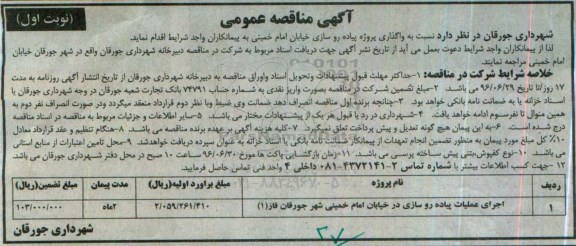 آگهی مناقصه عمومی
(نوبت اول)
شهرداری جورقان در نظر دارد نسبت به واگذاری پروژه پیاده رو سازی خیابان امام خمینی به پیمانکاران واجد شرایط اقدام نماید.
لذا از پیمانکاران واجد شرایط دعوت بعمل می آید از تاریخ نشر آگهی جهت دریافت اسناد مربوط به شرکت در مناقصه دبیرخانه شهرداری جورقان واقع در شهر جورقان خیابان
امام خمینی مراجعه نمایند.
خلاصه شرایط شرکت در مناقصه: ۱-حداکثر مهلت قبول پیشنهادات وتحویل اسناد واوراق مناقصه به دبیرخانه شهرداری جورقان از تاریخ انتشار آگهی روزنامه به مدت
۱۷ روز/تا تاریخ ۹۶/۰۶/۲۹ می باشد. ۲-مبلغ تضمین شرکت در مناقصه بصورت واریز نقدی به شماره حساب ۷۴۷۹۱ بانک تجارت شعبه جورقان در وجه شهرداری جورقان یا
اسناد خزانه یا به ضمانت نامه بانکی خواهد بود. ۳-چنانچه برنده اول مناقصه انصراف دهد ضمانت وی ضبط وبا نظر دوم قرارداد منعقد میگردد ودر صورت انصراف نفر دوم به
همین منوال تا نفرسوم ادامه خواهد یافت. ۴-شهرداری در رد یا قبول هر یک از پیشنهادات مختار می باشد. ۵-سایر اطلاعات و جزئیات مربوط به مناقصه در اسناد مناقصه
درج شده است. ۶-به این پیمان هیچ گونه تعدیل و پیش پرداخت تعلق نمیگیرد. ۷-کلیه هزینه آگهی بر عهده برنده مناقصه می باشد. ۸-هنگام تنظیم و عقد قرارداد معادل
۱۰٪ کل مبلغ مورد پیمان به منظور تضمین انجام تعهدات از پیمانکار ضمانت نامه بانکی یا اسناد خزانه به عنوان سپرده دریافت خواهدشد. ۹-محل تامین اعتبارات از منابع استانی
می باشد. ۱۰-نوع کفپوش بتنی پیش ساخته پرسی می باشد. ۱۱-زمان بازگشایی پاکت ها مورخ ۹۶/۰۶/۳۰ ساعت ۱۰ صبح در محل دفتر شهرداری جورقان می باشد.
۱۲-جهت کسب اطلاعات بیشتر با شماره تماس ۲-۴۳۷۲۱۴۱-۰۸۱ داخلی ۴ واحد فنی تماس حاصل فرمایید.
ردیف نام پروژه مبلغ براورد اولیه(ریال) مدت پیمان مبلغ تضمین(ریال)
۱ اجرای عملیات پیاده رو سازی در خیابان امام خمینی شهر جورقان فاز(۱) ۲/۰۵۹/۲۶۱/۴۱۰ ۲ماه ۱۰۳/۰۰۰/۰۰۰
شهرداری جورقان